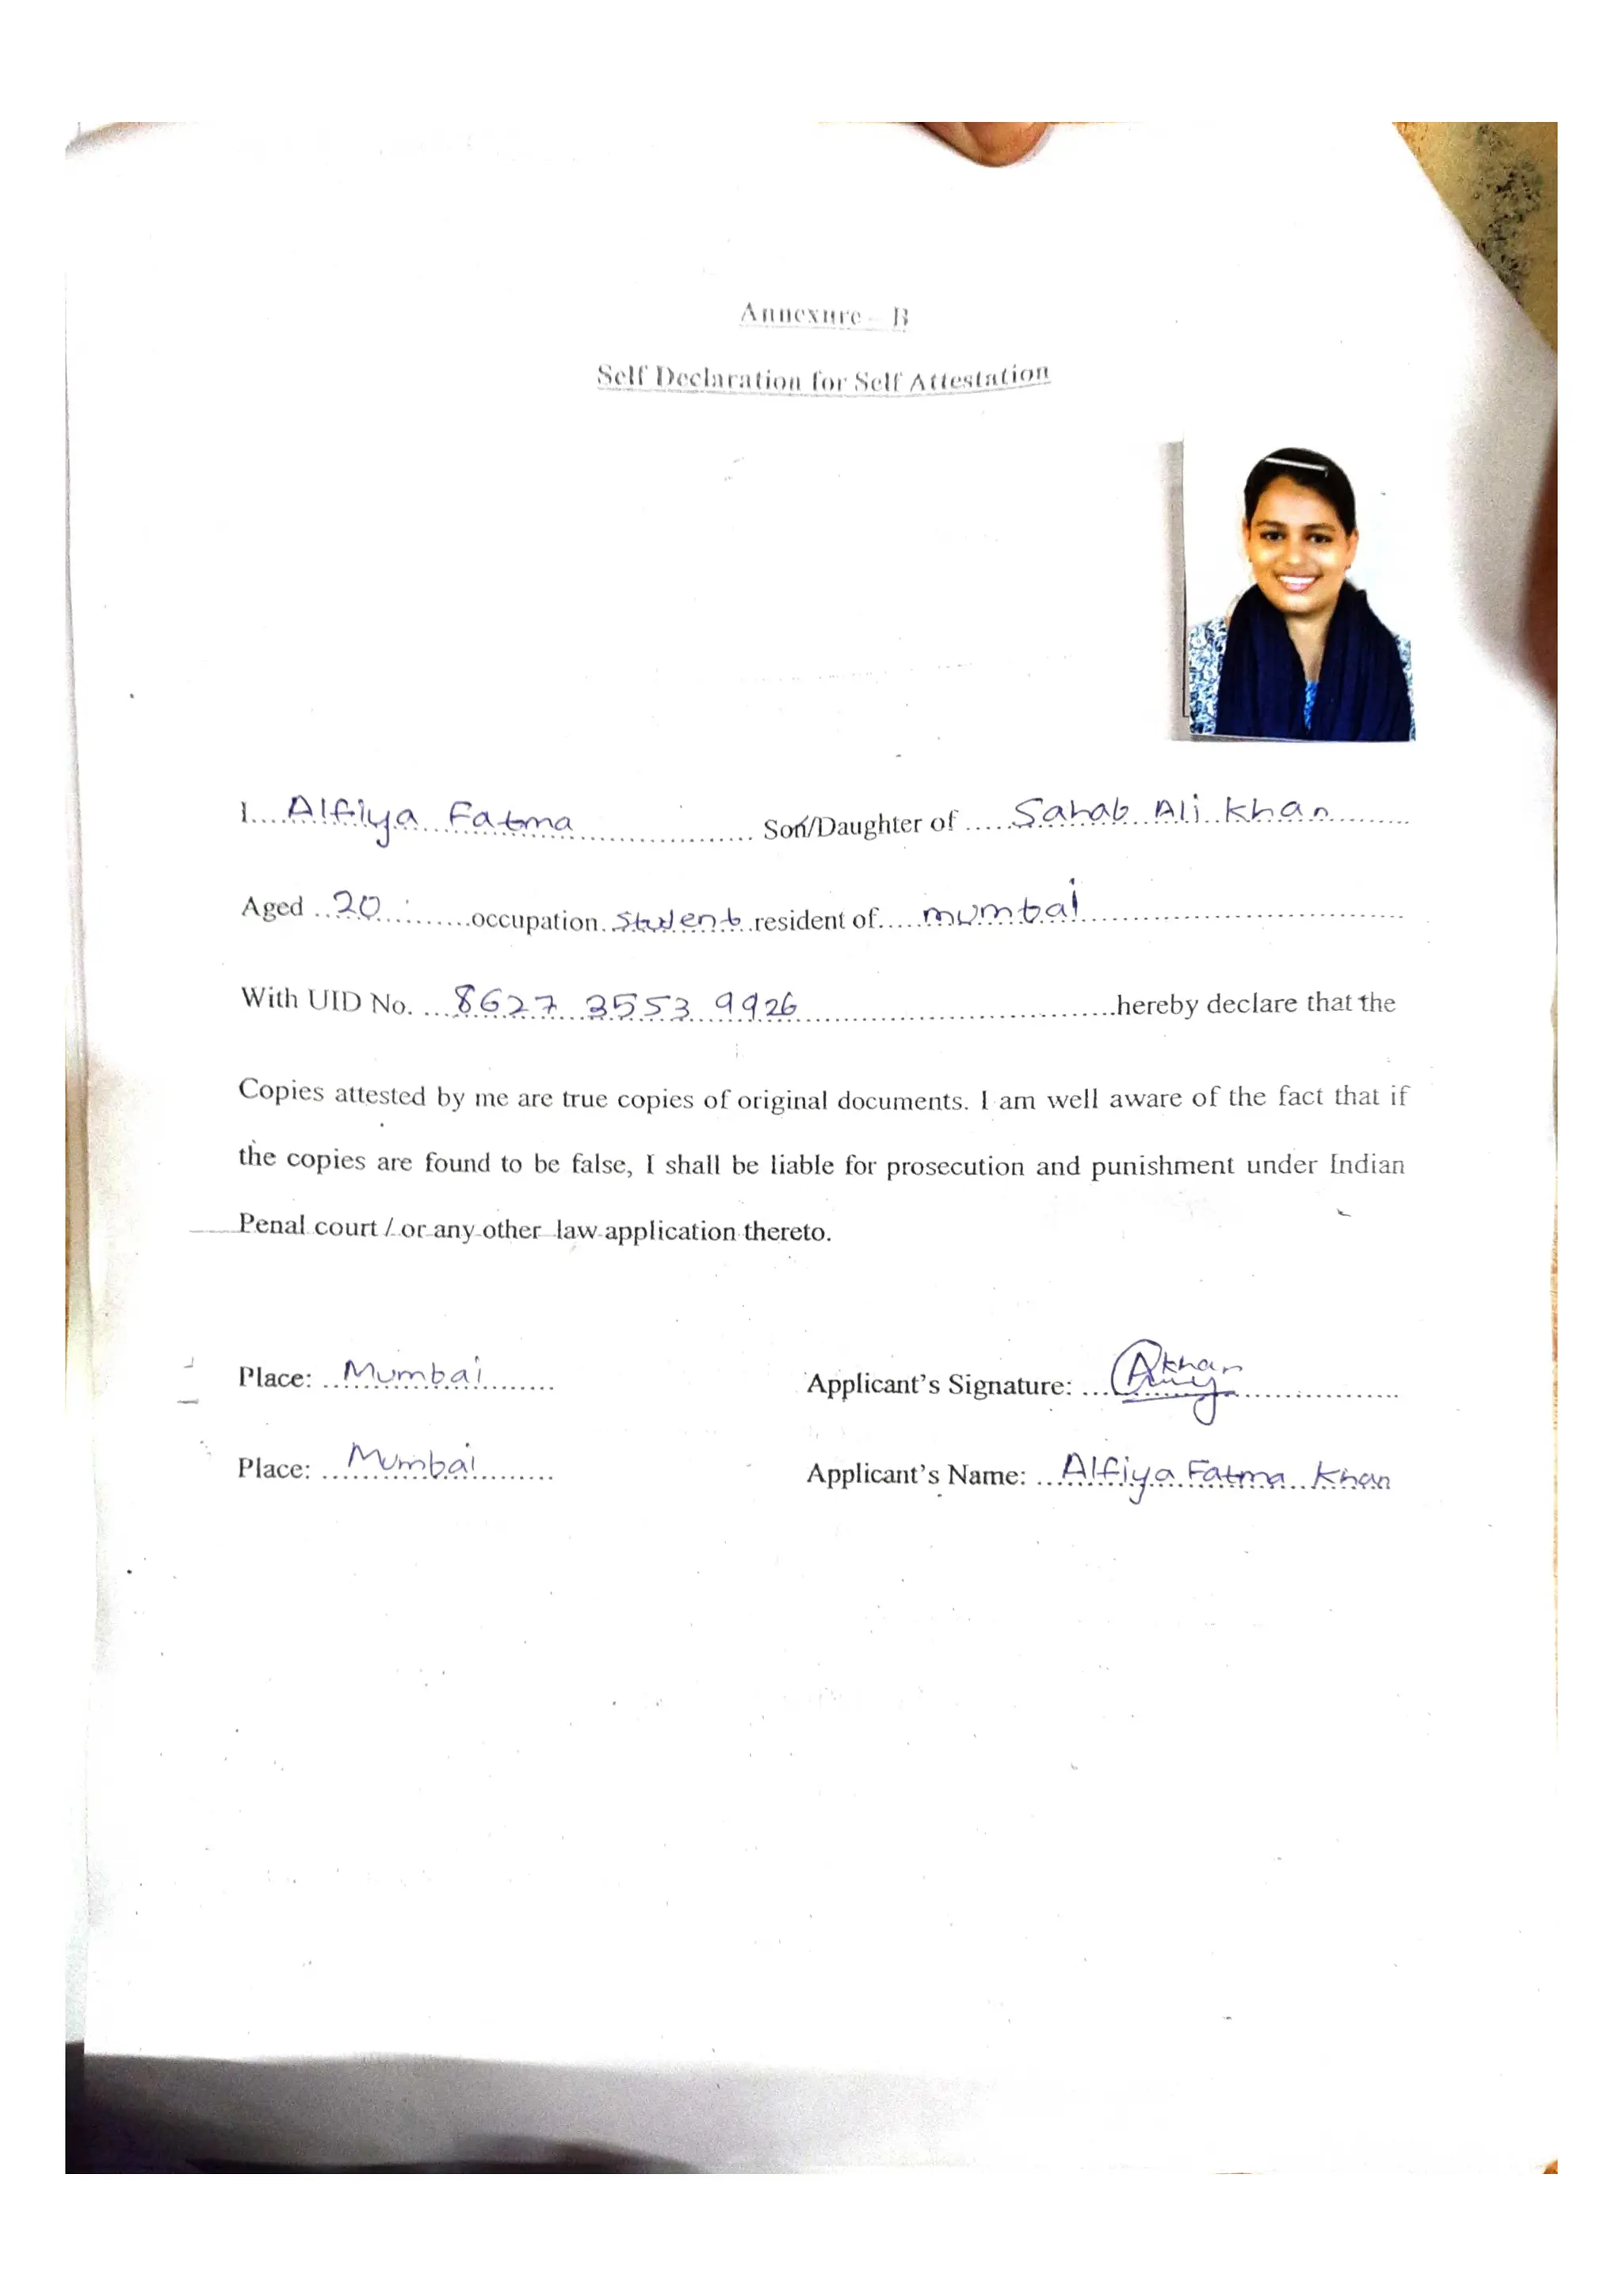 Annexure - B
Self Declaration for Self Attestation
I.... Alfiya Fatma ........................ Son/Daughter of ..... Sahab Ali Khan ..........
Aged .. 20 .......... occupation. Student .resident of..... mumbai ................................
With UID No. ... 8627 3553 9926 ................................hereby declare that the
Copies attested by me are true copies of original documents. I am well aware of the fact that if
the copies are found to be false, I shall be liable for prosecution and punishment under Indian
Penal court / or any other law application thereto.
Place: .. Mumbai ........ Applicant's Signature: ... Akhan ....................
Place: ... Mumbai ......... Applicant's Name: ... Alfiya Fatma Khan